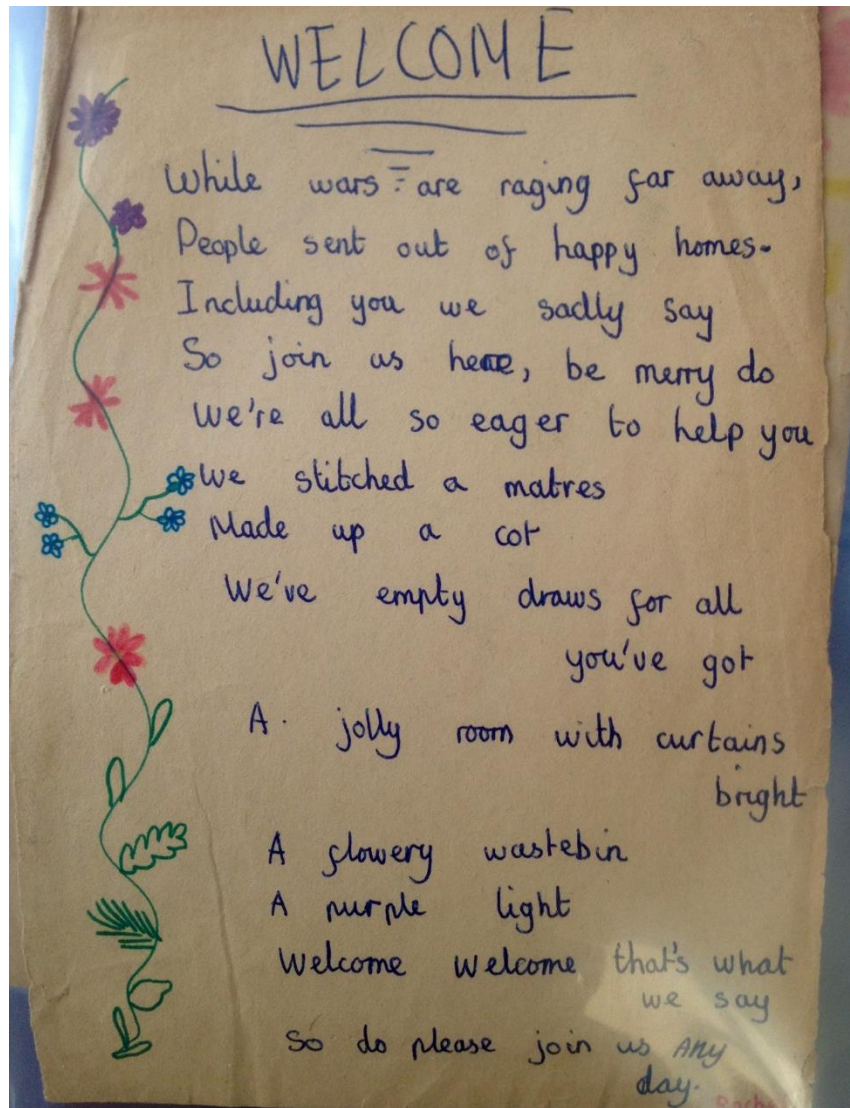 WELCOME
While wars are raging far away,
People sent out of happy homes-
Including you we sadly say
So join us here, be merry do
We're all so eager to help you
We stitched a matres
Made up a cot
We've empty draws for all
you've got
A jolly room with curtains
bright
A flowery wastebin
A purple light
Welcome welcome that's what
we say
So do please join us Any
day.